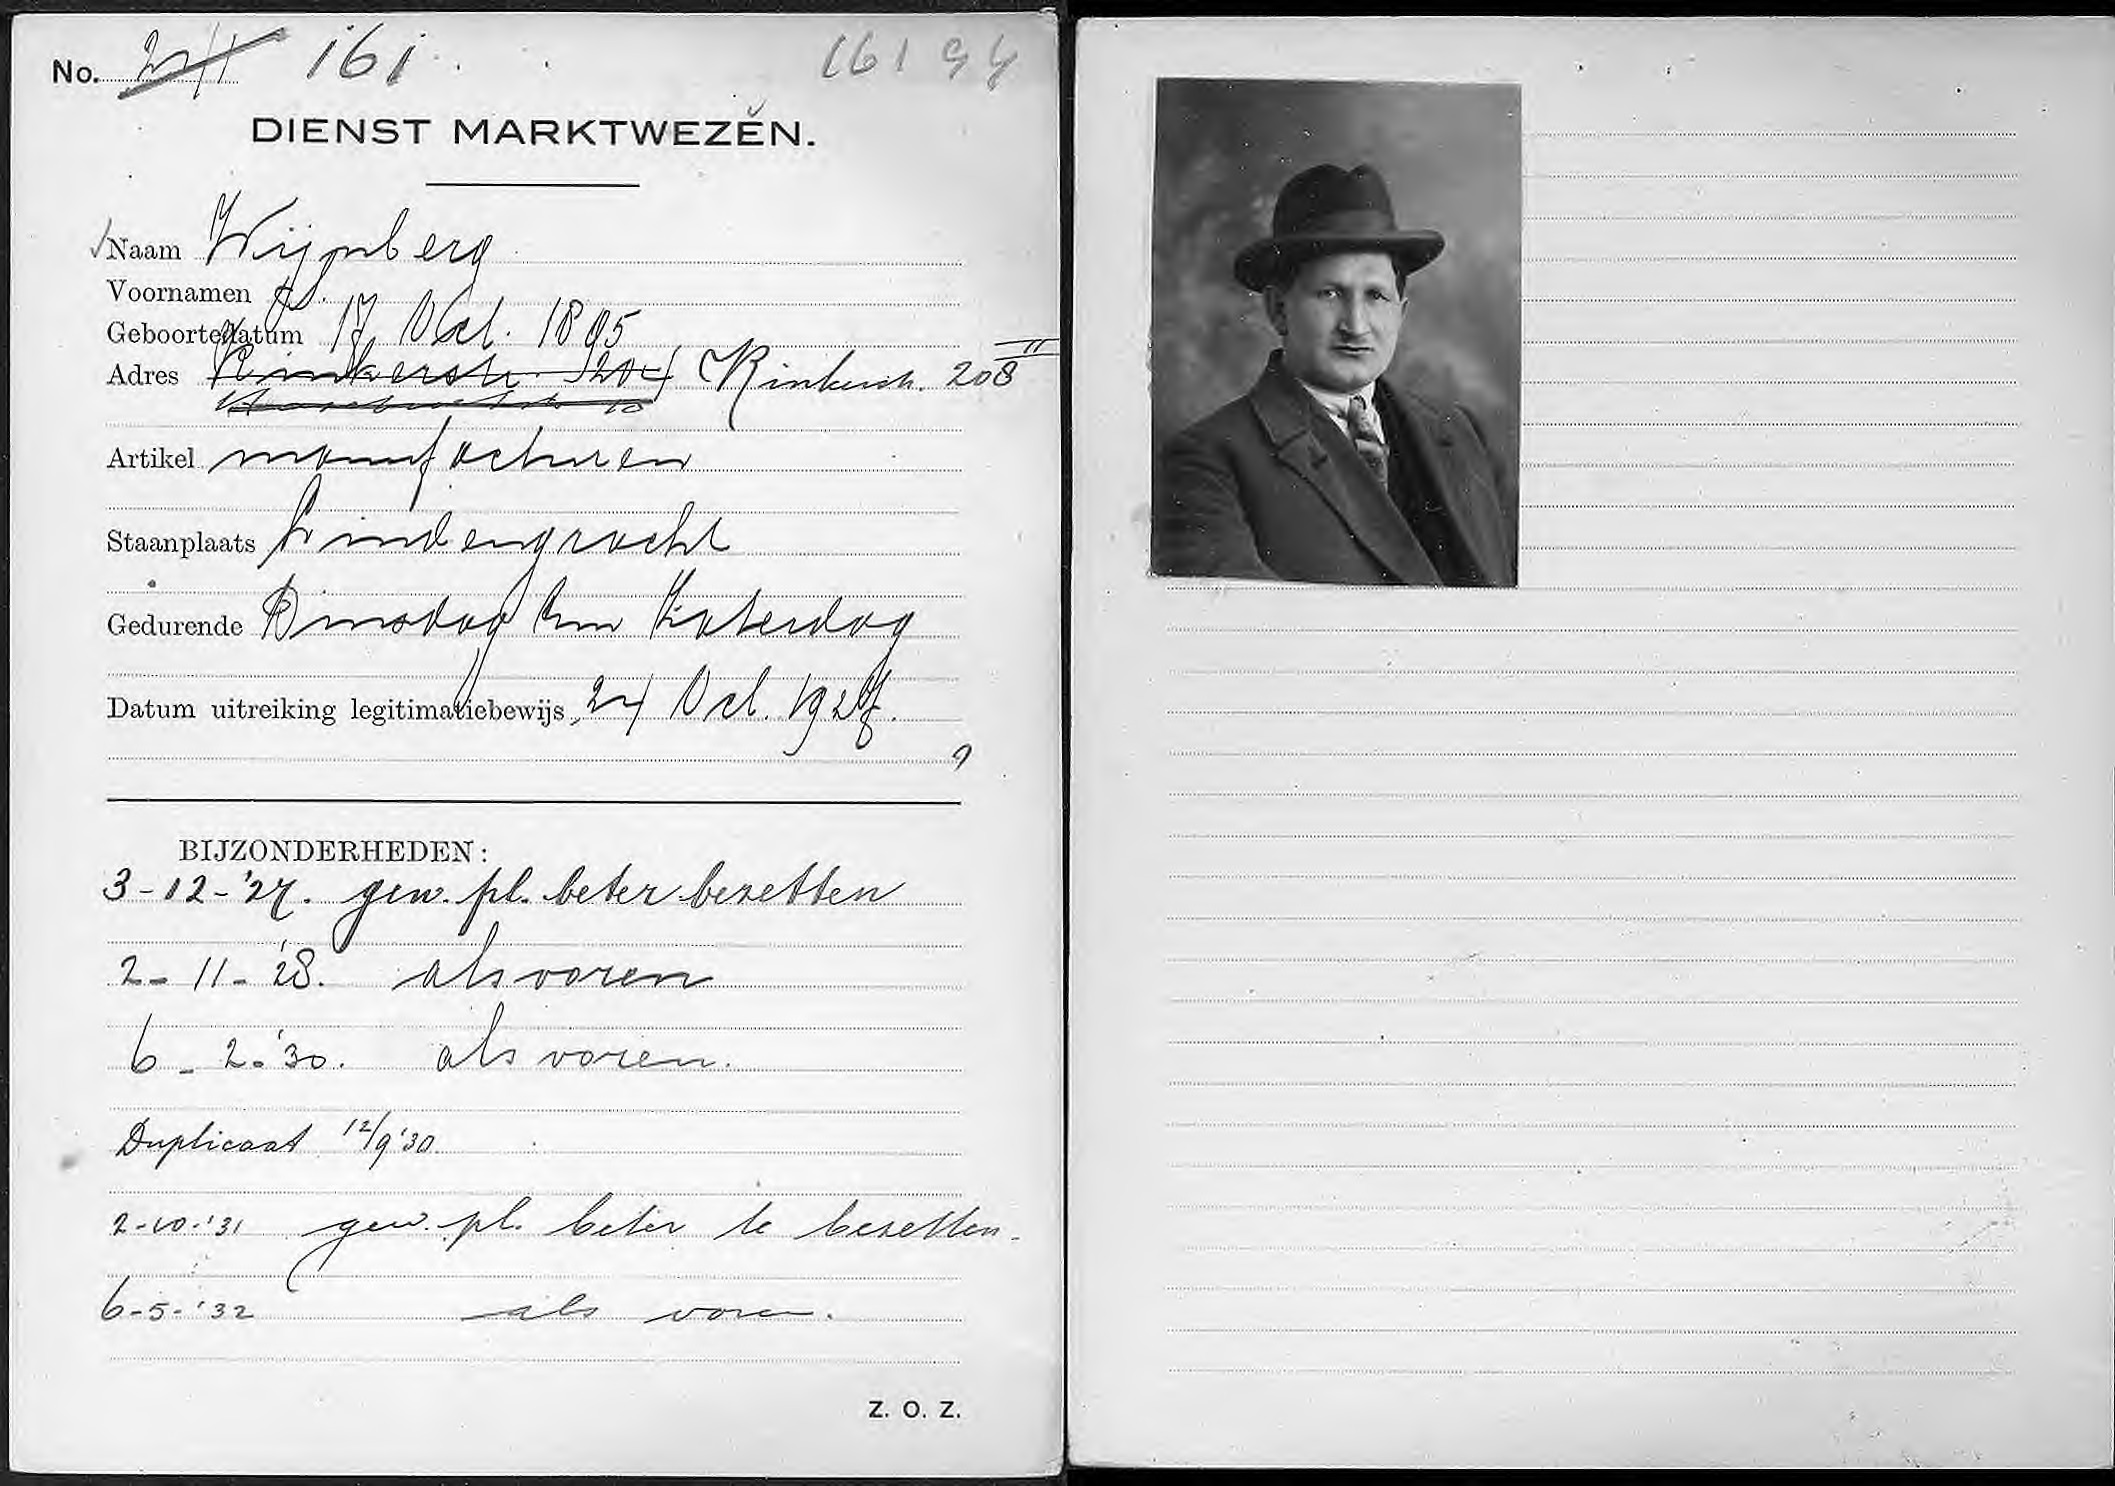 No. 161. 161
DIENST MARKTWEZEN.
Naam Wijnberg
Voornamen
Geboortedatum 17 Oct. 1895
Adres Kinkerstr. 204 Kinkerstr. 208 II
Artikel manufacturen
Staanplaats Lindengracht
Gedurende Dinsdag t/m Zaterdag
Datum uitreiking legitimatiebewijs 24 Oct. 1927.
BIJZONDERHEDEN:
3-12-'27. gew. pl. beter bezetten
2-11-'28. als voren
6-2-'30. als voren.
Duplicaat 12/9'30.
2-10-'31 gew. pl. beter te bezetten.
6-5-'32 als voren.
Z. O. Z.